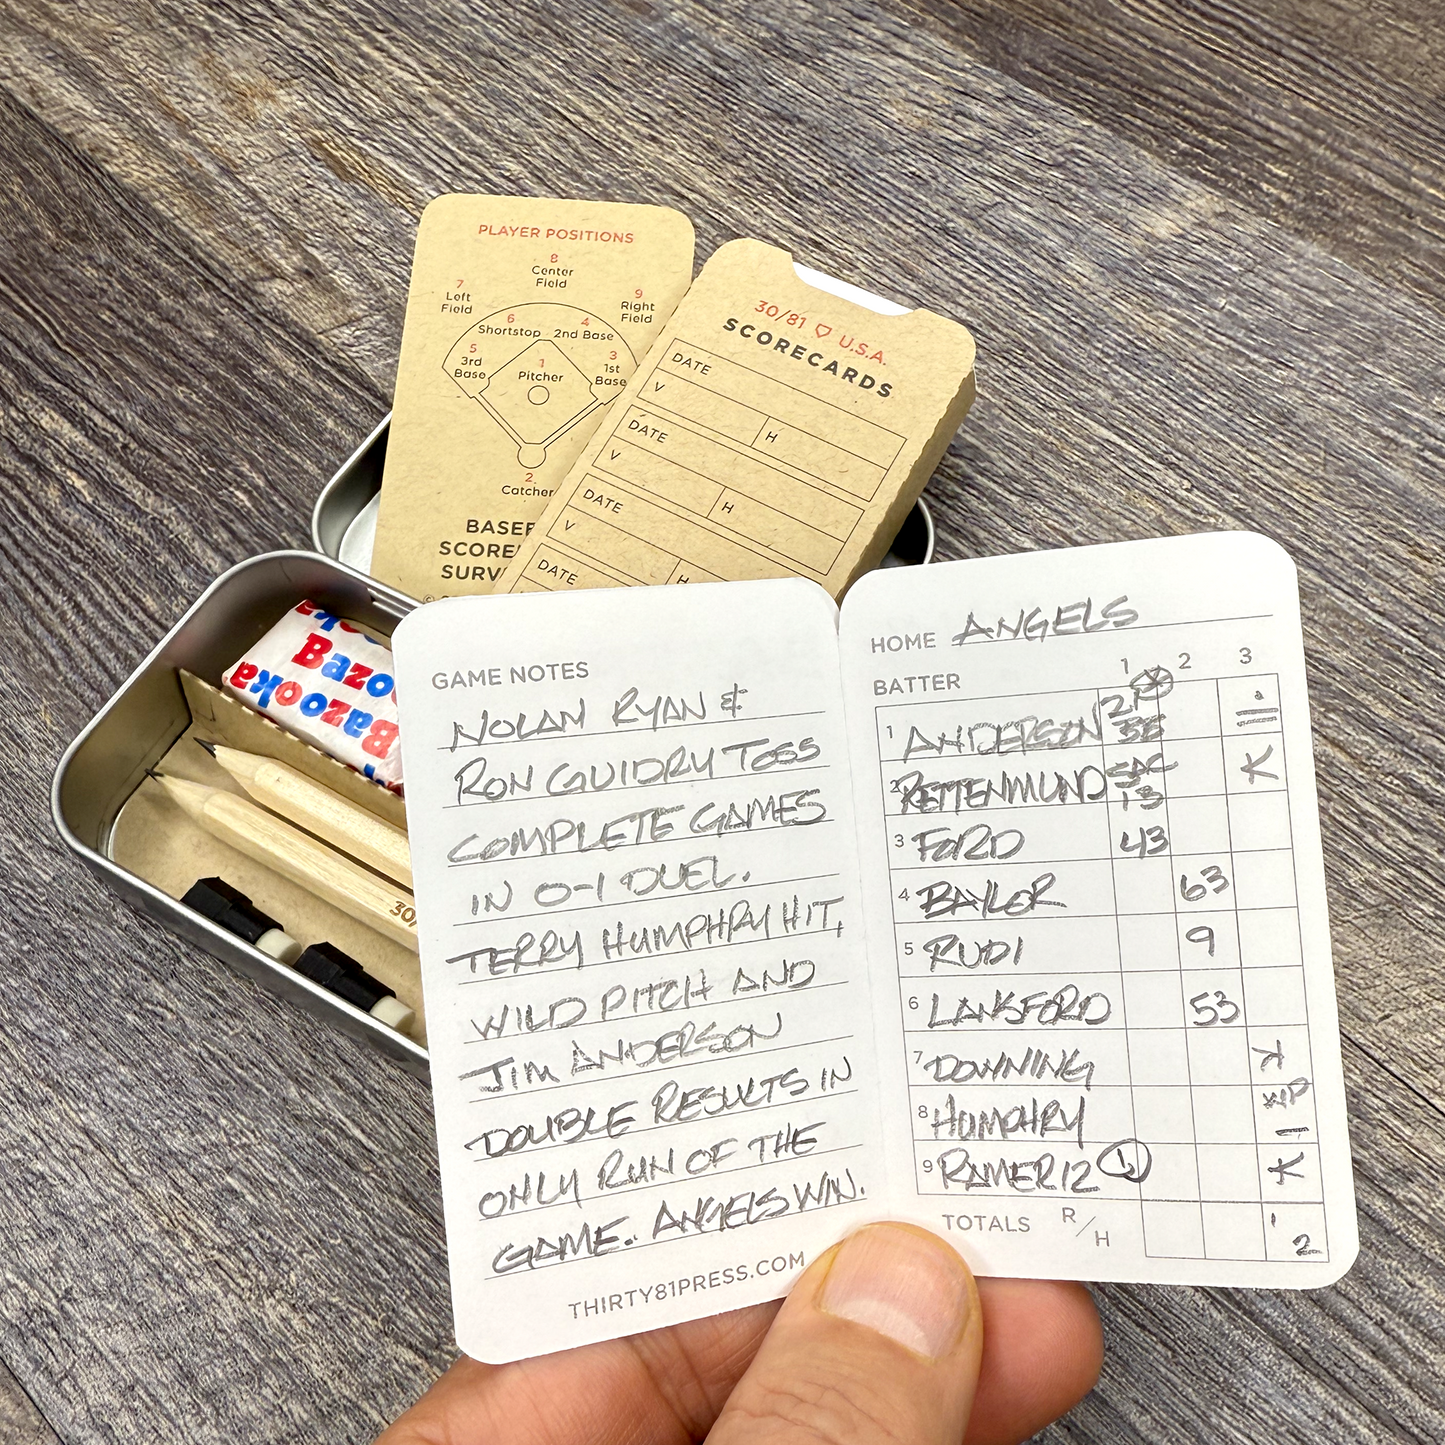 PLAYER POSITIONS
8
Center
Field
7
Left
Field
9
Right
Field
6
Shortstop
4
2nd Base
5
3rd
Base
3
1st
Base
1
Pitcher
2
Catcher
30/81 U.S.A.
SCORECARDS
DATE
V H
DATE
V H
DATE
V H
DATE
Bazooka
Bazooka
GAME NOTES
NOLAN RYAN &
RON GUIDRY TOSS
COMPLETE GAMES
IN 0-1 DUEL.
TERRY HUMPHRY HIT,
WILD PITCH AND
JIM ANDERSON
DOUBLE RESULTS IN
ONLY RUN OF THE
GAME. ANGELS WIN.
THIRTY81PRESS.COM
HOME ANGELS
BATTER 1 2 3
1 ANDERSON
2 RETTENMUND SAC 13 K
3 FORD 43
4 BAYLOR 63
5 RUDI 9
6 LANSFORD 53
7 DOWNING K
8 HUMPHRY WP
9 RAMEREZ 1 K
TOTALS R/H 1 2